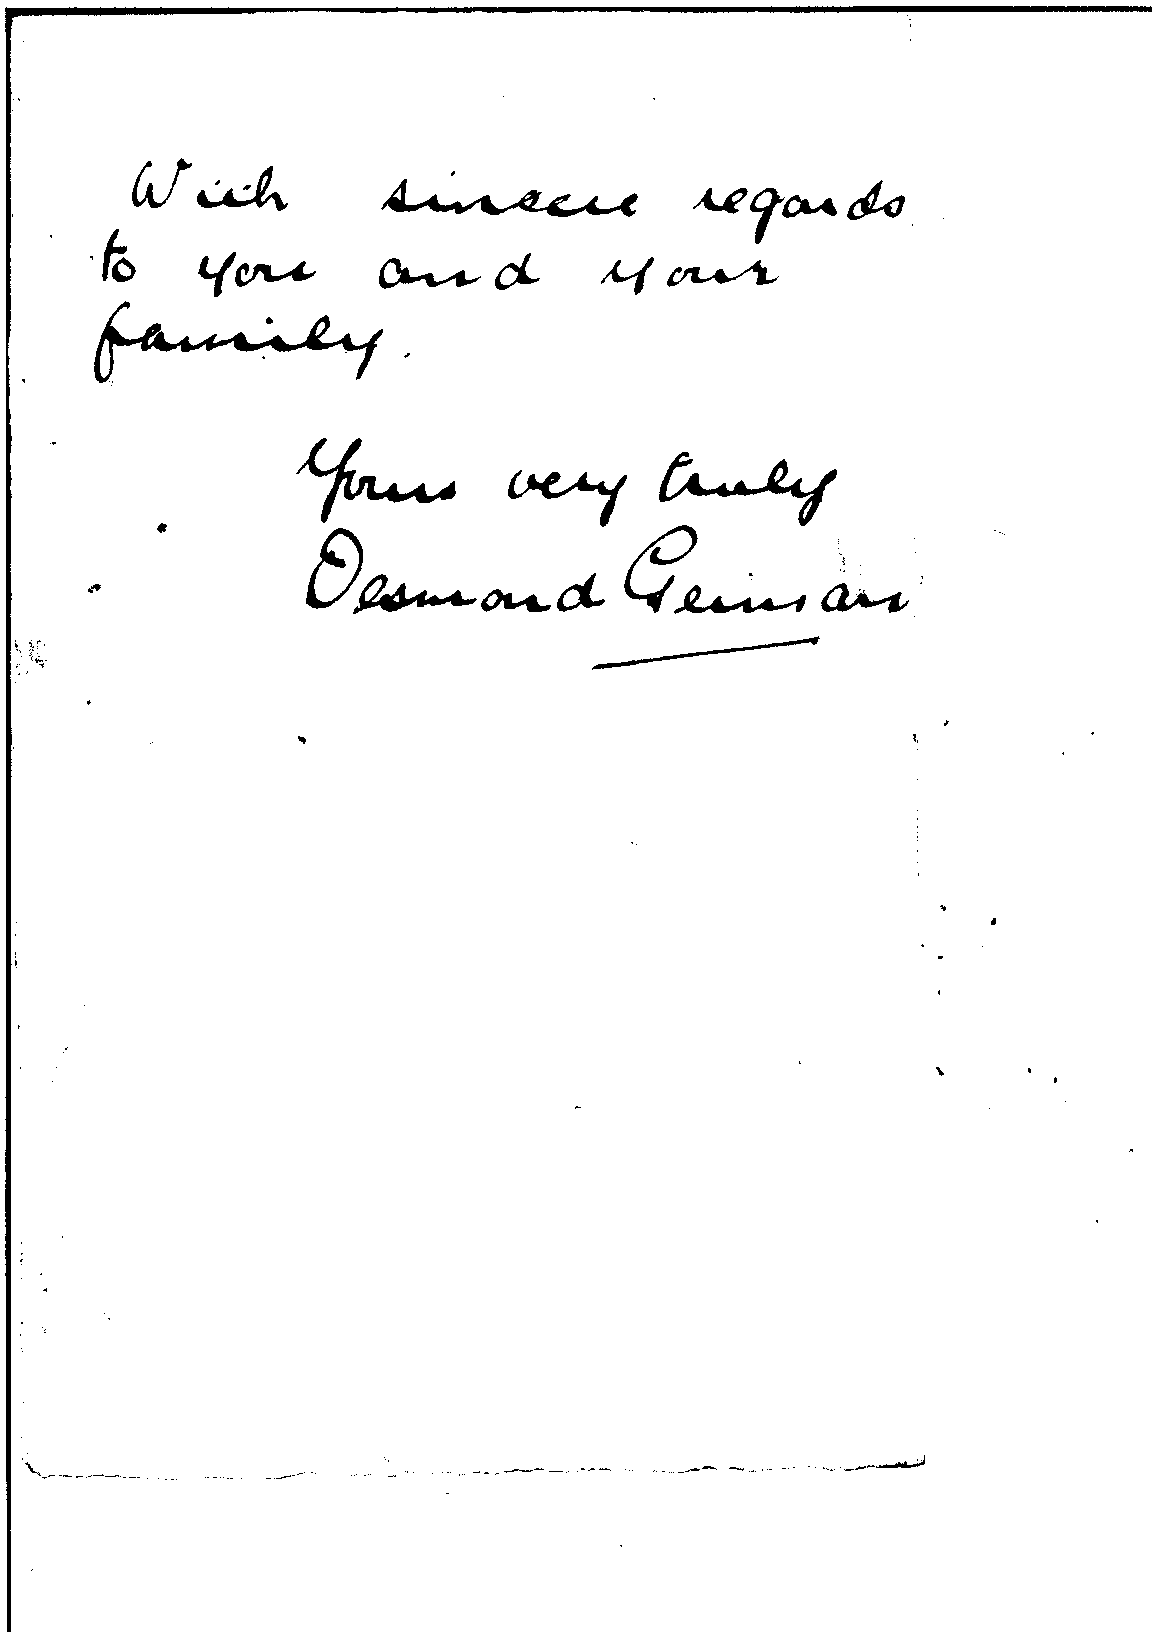 With sincere regards
to you and your
family.
Yours very truly
Desmond German